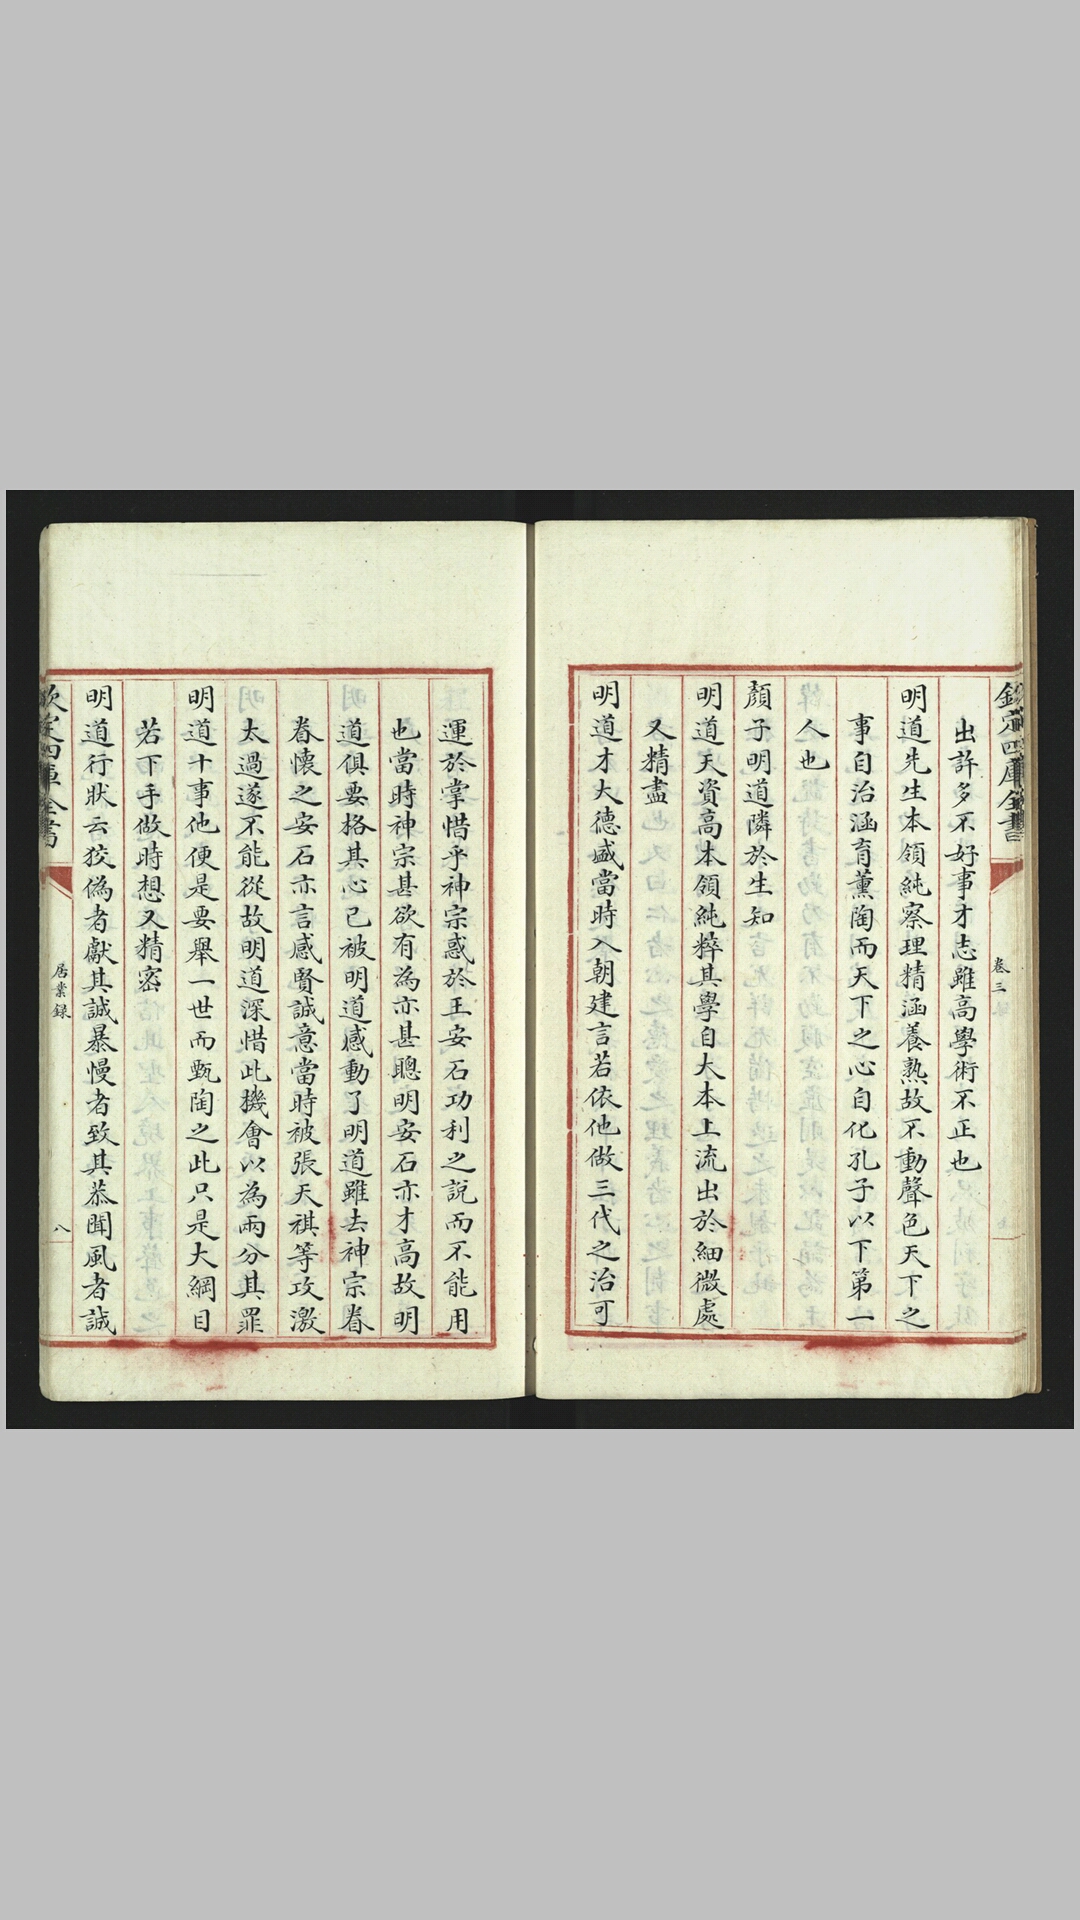 欽定四庫全書
卷三
出許多不好事才志雖高學術不正也
明道先生本領純察理精涵養熟故不動聲色天下之
事自治涵育薰陶而天下之心自化孔子以下第一
人也
顏子明道隣於生知
明道天資高本領純粹其學自大本上流出於細微處
又精盡
明道才大德盛當時入朝建言若依他做三代之治可
運於掌惜乎神宗惑於王安石功利之說而不能用
也當時神宗甚欲有為亦甚聰明安石亦才高故明
道俱要格其心已被明道感動了明道雖去神宗眷
眷懷之安石亦言感賢誠意當時被張天祺等攻激
太過遂不能從故明道深惜此機會以為兩分其罪
明道十事他便是要舉一世而甄陶之此只是大綱目
若下手做時想又精密
明道行狀云狡偽者獻其誠暴慢者致其恭聞風者誠
欽定四庫全書
居業錄
八